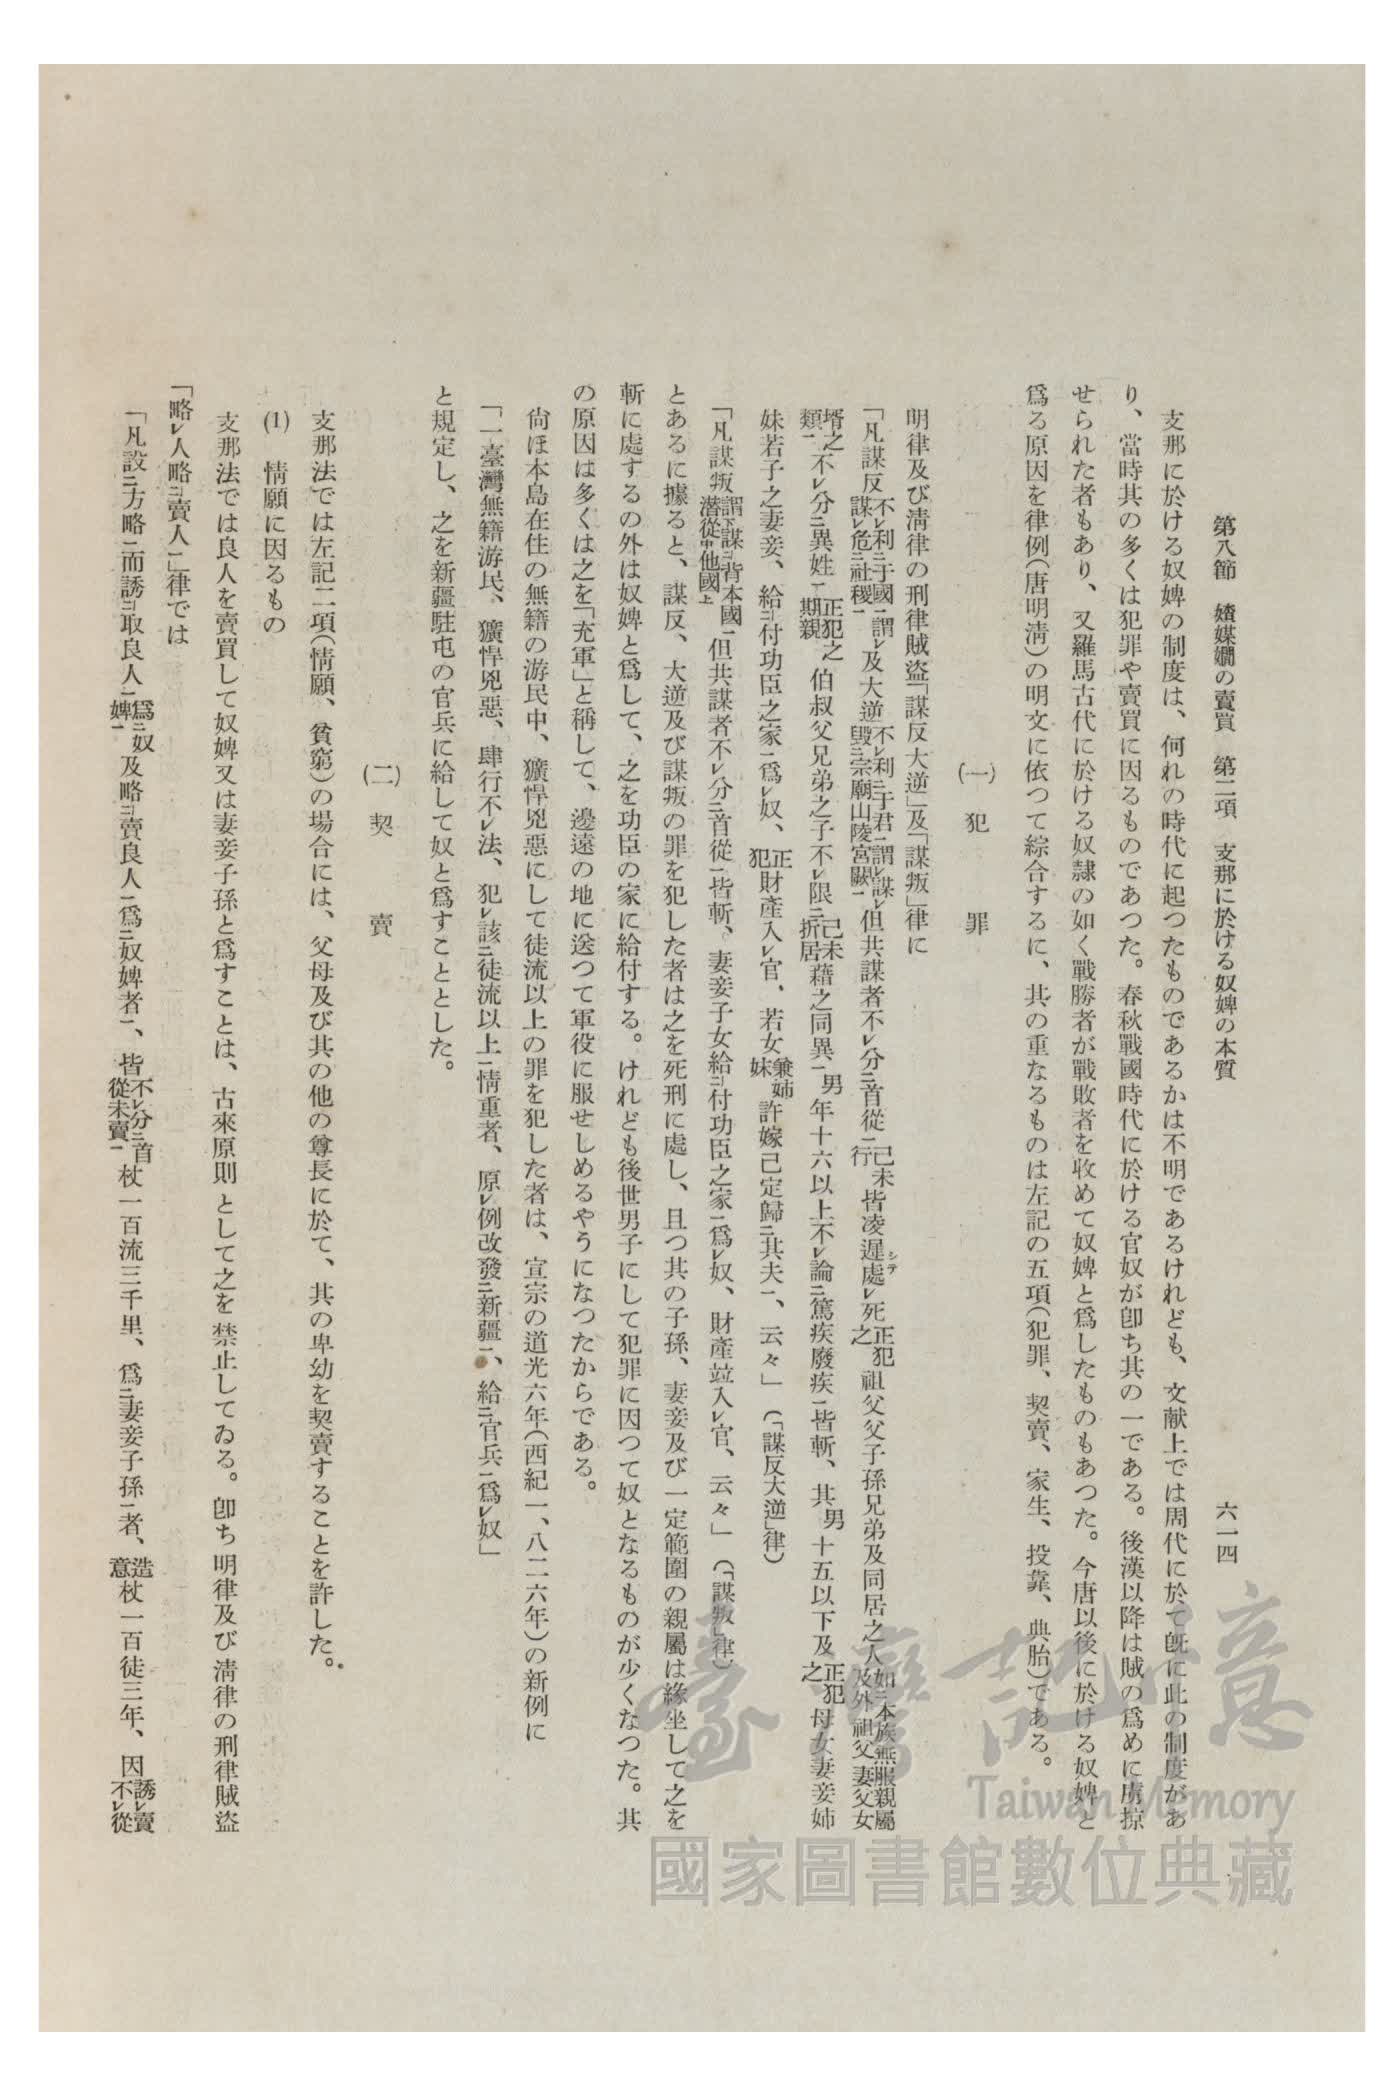 第八節　䞋媒嫺の賣買　第二項　支那に於ける奴婢の本質　六一四
支那に於ける奴婢の制度は、何れの時代に起つたものであるかは不明であるけれども、文献上では周代に於て既に此の制度があ
り、當時其の多くは犯罪や賣買に因るものであつた。春秋戰國時代に於ける官奴が卽ち其の一である。後漢以降は賊の爲めに虜掠
せられた者もあり、又羅馬古代に於ける奴隷の如く戰勝者が戰敗者を收めて奴婢と爲したものもあつた。今唐以後に於ける奴婢と
爲る原因を律例(唐明淸)の明文に依つて綜合するに、其の重なるものは左記の五項(犯罪、契賣、家生、投靠、典胎)である。
(一)　犯　罪
明律及び淸律の刑律賊盜「謀反大逆」及「謀叛」律に
「凡謀反不レ利ニ于國一謂レ謀レ危ニ社稷一及大逆不レ利ニ于君一謂レ謀レ毀ニ宗廟山陵宮闕一但共謀者不レ分ニ首從一已未行皆凌遲處シテレ死正犯之祖父父子孫兄弟及同居之人如ニ本族無服親屬及外祖父妻父女
壻之類一不レ分ニ異姓一正犯之期親伯叔父兄弟之子不レ限ニ已未析居藉之同異一男年十六以上不レ論ニ篤疾廢疾一皆斬、其男十五以下及正犯之母女妻妾姉
妹若子之妻妾、給ニ付功臣之家一爲レ奴、正犯財產入レ官、若女兼姉妹許嫁已定歸ニ其夫一、云々」(「謀反大逆」律)
「凡謀叛謂下謀ニ背本國一潛從中他國上但共謀者不レ分ニ首從一皆斬、妻妾子女給ニ付功臣之家一爲レ奴、財產竝入レ官、云々」(「謀叛」律)
とあるに據ると、謀反、大逆及び謀叛の罪を犯した者は之を死刑に處し、且つ其の子孫、妻妾及び一定範圍の親屬は緣坐して之を
斬に處するの外は奴婢と爲して、之を功臣の家に給付する。けれども後世男子にして犯罪に因つて奴となるものが少くなつた。其
の原因は多くは之を「充軍」と稱して、邊遠の地に送つて軍役に服せしめるやうになつたからである。
尙ほ本島在住の無籍の游民中、獷悍兇惡にして徒流以上の罪を犯した者は、宣宗の道光六年(西紀一、八二六年)の新例に
「一臺灣無籍游民、獷悍兇惡、肆行不レ法、犯レ該ニ徒流以上一情重者、原レ例改發ニ新疆一、給ニ官兵一爲レ奴」
と規定し、之を新疆駐屯の官兵に給して奴と爲すこととした。
(二)　契　賣
支那法では左記二項(情願、貧窮)の場合には、父母及び其の他の尊長に於て、其の卑幼を契賣することを許した。
(1)　情願に因るもの
支那法では良人を賣買して奴婢又は妻妾子孫と爲すことは、古來原則として之を禁止してゐる。卽ち明律及び淸律の刑律賊盜
「略レ人略ニ賣人一」律では
「凡設ニ方略一而誘ニ取良人一爲ニ奴婢一及略ニ賣良人一爲ニ奴婢者一、皆不レ分ニ首從未賣一杖一百流三千里、爲ニ妻妾子孫一者、造意杖一百徒三年、因誘レ賣不レ從
臺灣記憶
Taiwan Memory
國家圖書館數位典藏